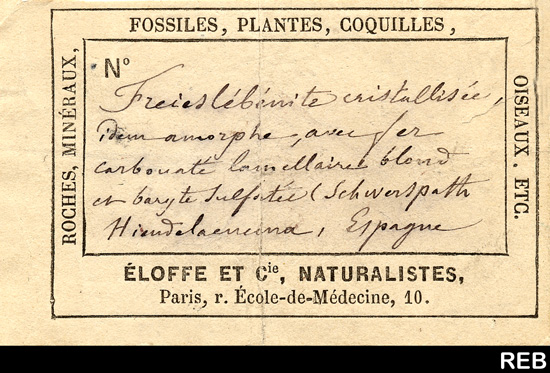 FOSSILES, PLANTES, COQUILLES,
ROCHES, MINÉRAUX,
OISEAUX. ETC.
N°
Freieslébénite cristallisée,
idem amorphe, avec fer
carbonaté lamellaire blond
et baryte sulfatée (Schwerspath
Hiendelaencina, Espagne
ÉLOFFE ET Cie, NATURALISTES,
Paris, r. École-de-Médecine, 10.
REB